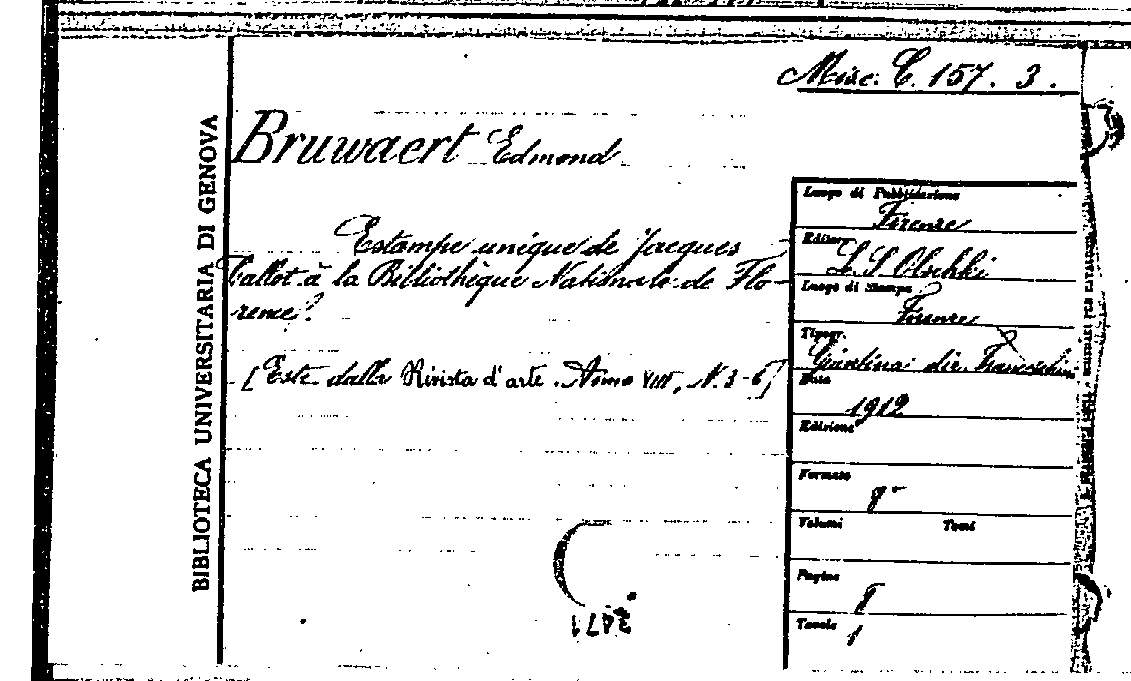 Misc. C. 157. 3.
BIBLIOTECA UNIVERSITARIA DI GENOVA
Bruwaert Edmond
Estampe unique de Jacques
Callot à la Bibliothèque Nationale de Flo-
rence.
[Estr. dalla Rivista d'arte. Anno VIII, N. 3-6]
Luogo di Pubblicazione
Firenze
Editore
L. S. Olschki
Luogo di Stampa
Firenze
Tipogr.
Giuntina dir. Franceschini
Data
1912
Edizione
Formato
8°
Volumi Tomi
Pagine
8
Tavole
1
3471